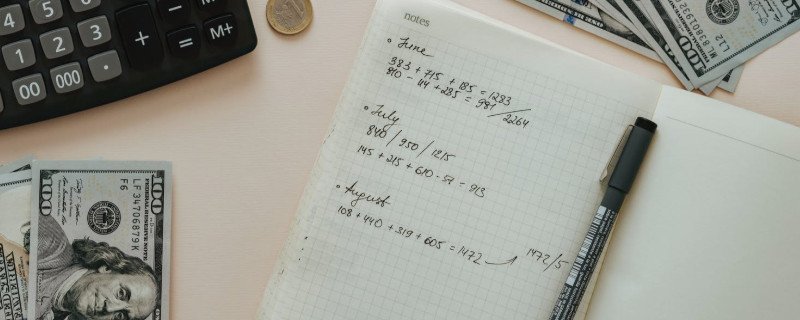 notes
• June
383 + 715 + 185 = 1283
810 - 44 + 235 = 981 / 2264
• July
840 / 950 / 1215
145 + 215 + 610 - 57 = 913
• August
108 + 440 + 319 + 605 = 1472
1472/5
1 2 3 +
4 5 6 = M+
00 000 .
100
LF 34706879
F6
FEDERAL RESERVE NOTE
100
ML 8901932
L12
100